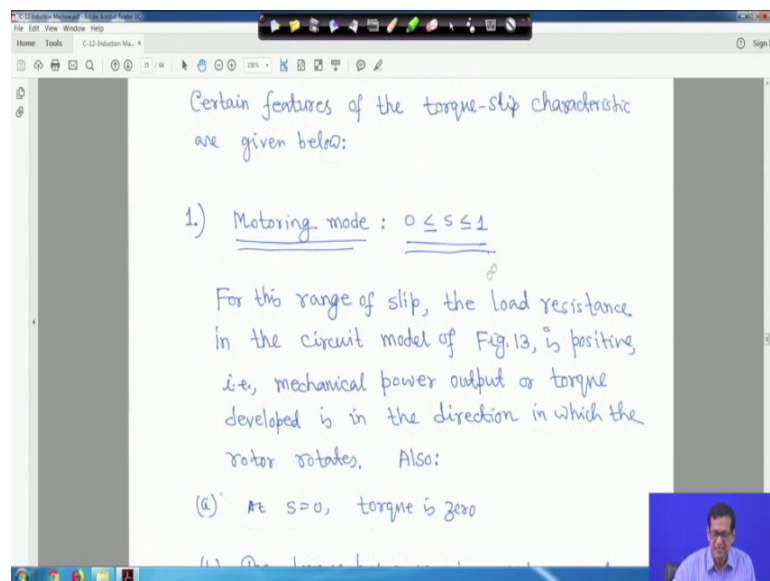 C-12-Induction Machine.pdf - Adobe Acrobat Reader DC
File Edit View Window Help
Home Tools C-12-Induction Ma... ×
Sign
15 / 44
150%
Certain features of the torque-slip characteristic
are given below:
1.) Motoring mode : 0 ≤ s ≤ 1
For this range of slip, the load resistance
in the circuit model of Fig. 13, is positive,
i.e., mechanical power output or torque
developed is in the direction in which the
rotor rotates. Also:
(a) At s=0, torque is zero